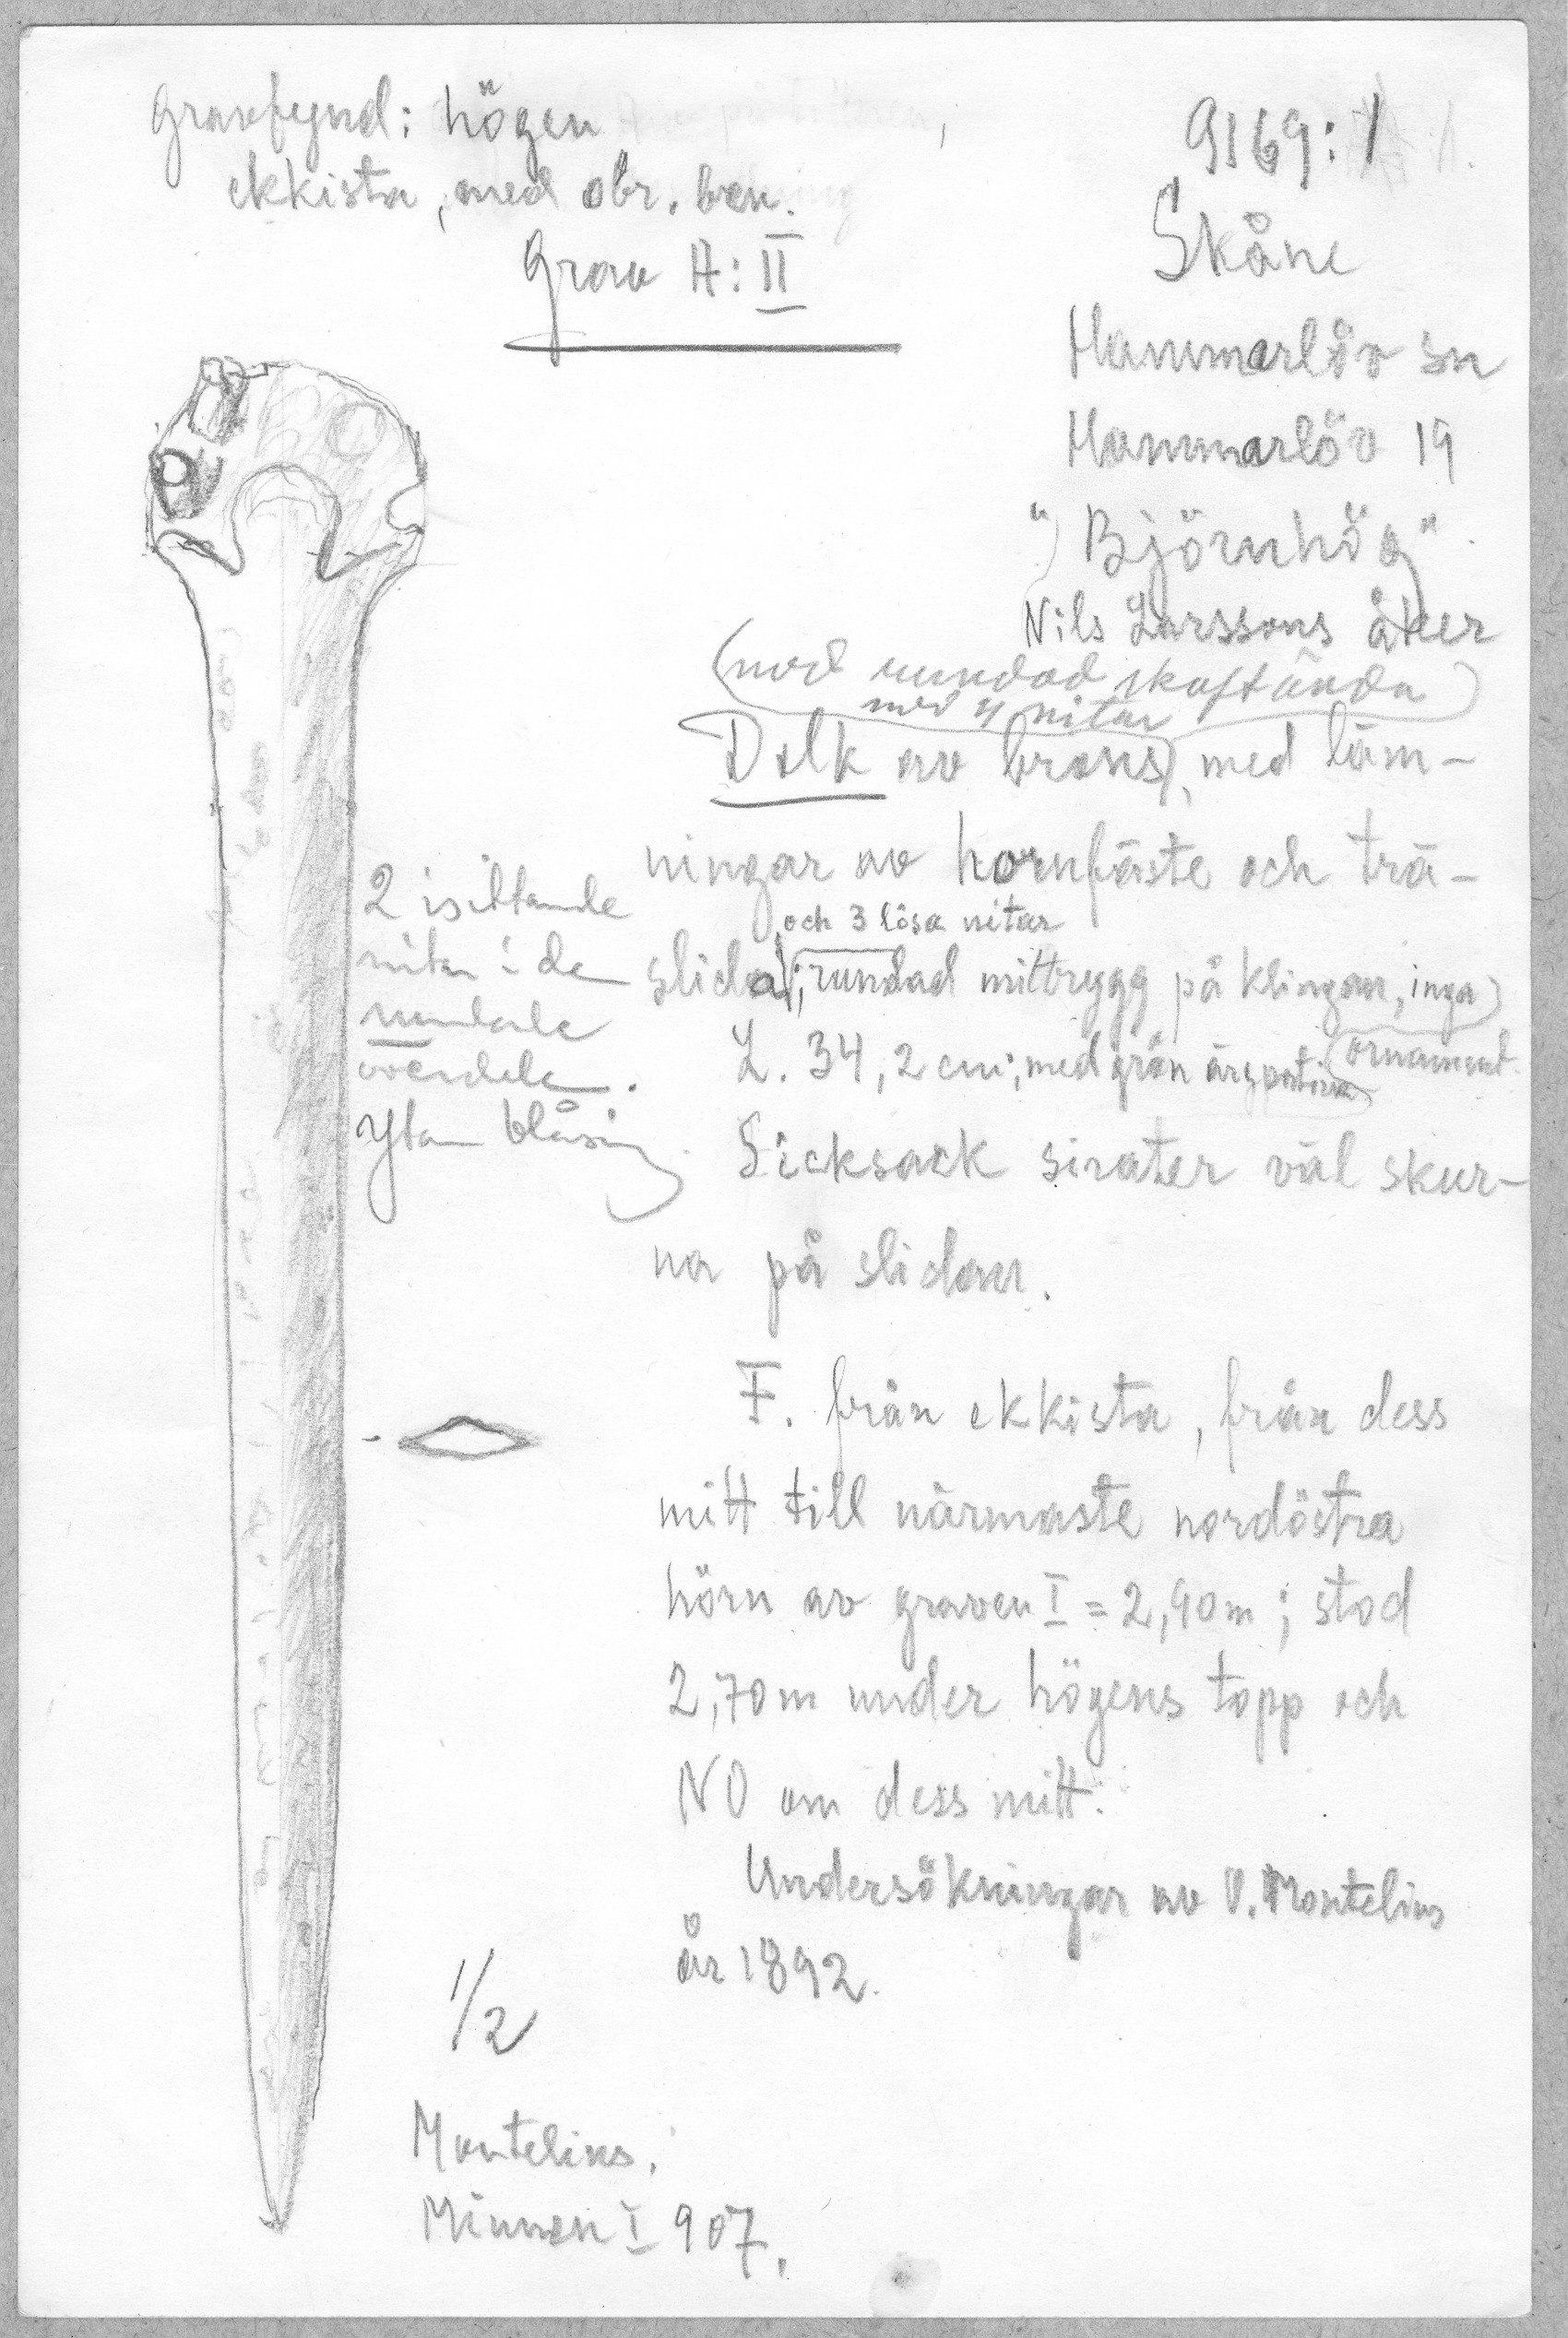 Gravfynd: högen
ekkista, med obr. ben.
Grav A: II
9169: 1
Skåne
Hammarlöv sn
Hammarlöv 19
"Björnhög"
Nils Larssons åker
(med rundad skaftända
med 4 nitar)
Dolk av brons, med läm-
ningar av hornfäste och trä-
och 3 lösa nitar
slida; rundad mittrygg på klingan, inga
ornament.
L. 34,2 cm; med grön ärgpatina
Sicksack sirater väl skur-
na på slidan.
2 isittande
nitar i de
rundade
Ytan blåsig
F. från ekkista, från dess
mitt till närmaste nordöstra
hörn av graven I = 2,90 m; stod
2,70 m under högens topp och
NO om dess mitt.
Undersökningar av O. Montelius
år 1892.
1/2
Montelius.
Minnen I 907.